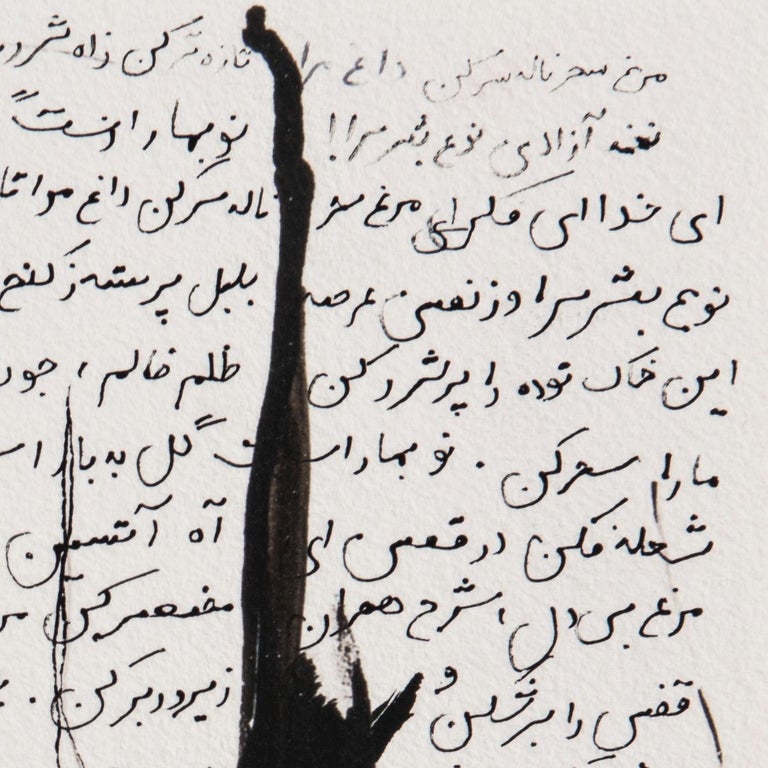 مرغ سحر ناله سر کن داغ مرا تازه تر کن زآه شرر
نغمه آزادی نوع بشر سرا! نوبهار است
ای خدا ای فلک ای مرغ سحر ناله سر کن داغ مرا تا
نوع بشر سرا وز نفسی عرصه بلبل پربسته ز کنج
این خاک توده را پر شرر کن ظلم ظالم، جور
ما را سحر کن. نوبهار است گل به بار
شعله فکن در قفس ای آه آتشین
مرغ بی دل، شرح هجران مختصر کن
قفس را برشکن و زیر و زبر کن.